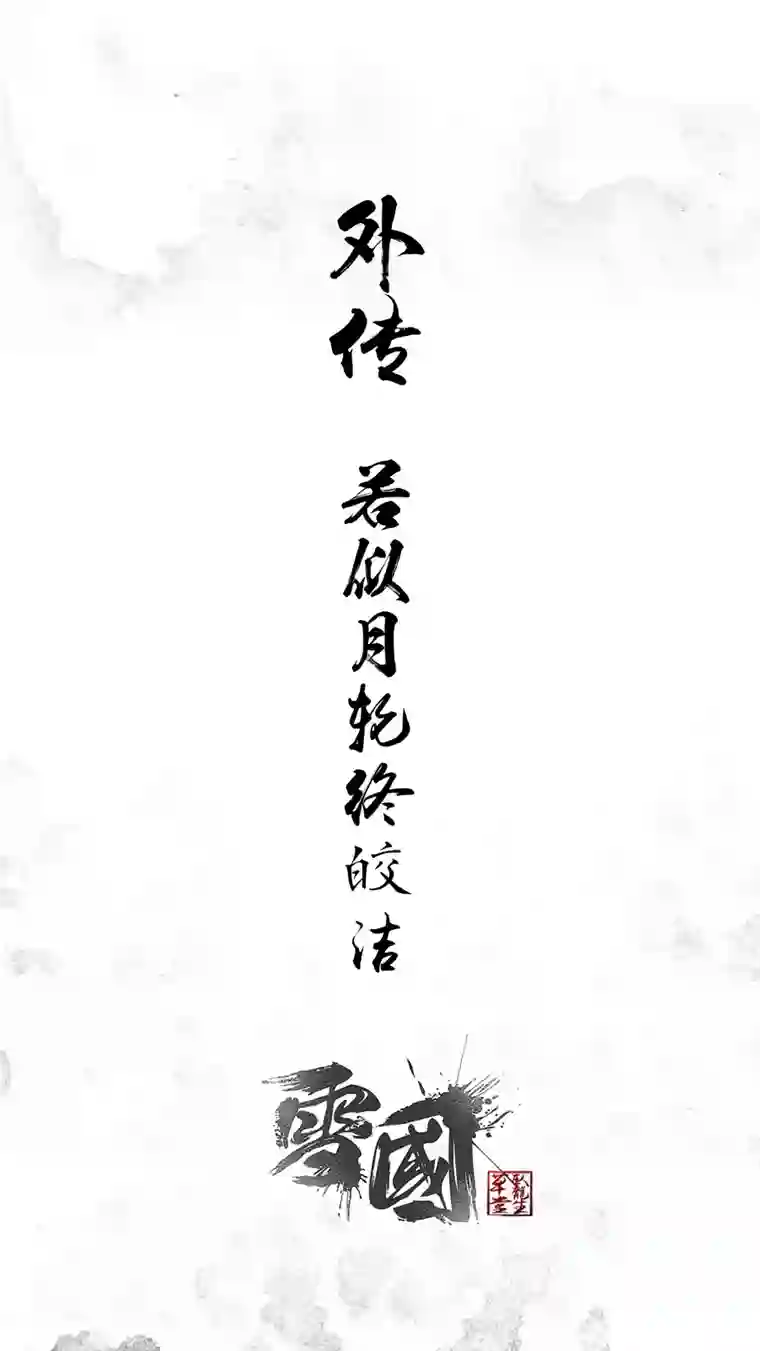 外传
若似月轮终皎洁
雪國